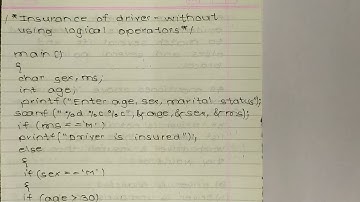 /*Insurance of driver - without
using logical operators*/
main()
{
char sex, ms;
int age;
printf("Enter age, sex, marital status");
scanf("%d %c %c", &age, &sex, &ms);
if (ms == 'M')
printf("Driver is insured");
else
{
if (sex == 'M')
{
if (age > 30)